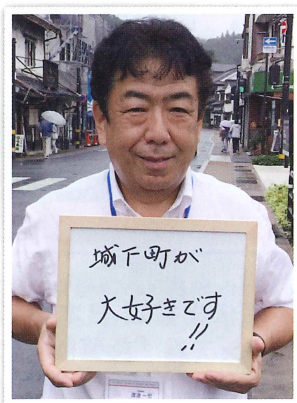 城下町が
大好きです
!!